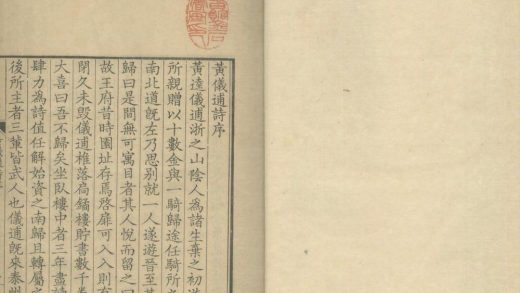 黃儀逋詩序
黃逵儀逋浙之山陰人為諸生棄之初遊
所親贈以十數金與一騎歸途任騎所之
南北道既左乃思別就一人遂遊晉至其
歸曰是間無可寓目者其人悅而留之曰
故王府昔時園址存焉啓扉可入入則有
閉久未毀儀逋椎落扃鐍樓貯書數千卷
大喜曰吾不歸矣坐臥樓中者三年盡讀
肆力為詩值任解始資之南歸且轉屬
後所主者三輩皆武人也儀逋既來泰州